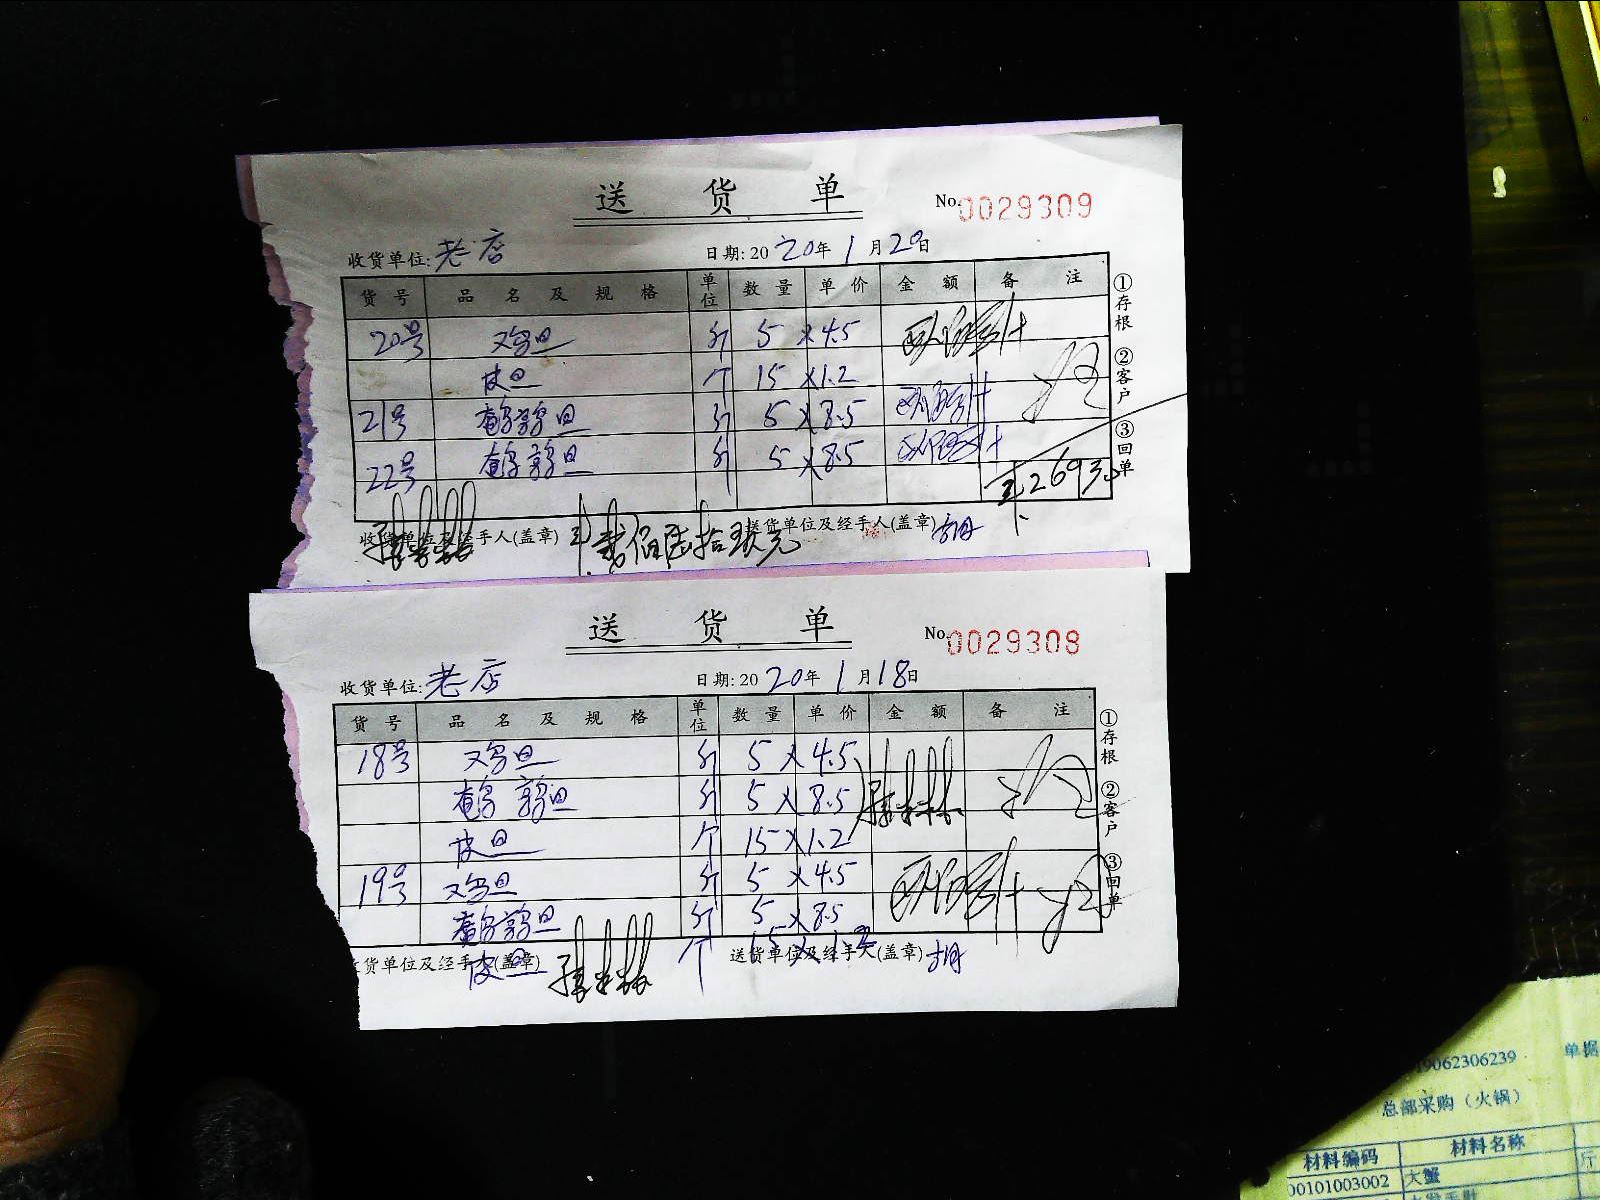 送 货 单
No. 0029309
收货单位: 老店 日期: 2020年1月20日
货号 品名及规格 单位 数量 单价 金额 备注
20号 又鸟旦 斤 5 × 4.5
皮旦 个 15 × 1.2
21号 鹌鹑旦 斤 5 × 8.5
22号 鹌鹑旦 斤 5 × 8.5
①存根 ②客户 ③回单
收货单位及经手人(盖章) 送货单位及经手人(盖章) 胡
送 货 单
No. 0029308
收货单位: 老店 日期: 2020年1月18日
货号 品名及规格 单位 数量 单价 金额 备注
18号 又鸟旦 斤 5 × 4.5
鹌鹑旦 斤 5 × 8.5
皮旦 个 15 × 1.2
19号 又鸟旦 斤 5 × 4.5
鹌鹑旦 斤 5 × 8.5
皮旦 个 15 × 1.2
①存根 ②客户 ③回单
货单位及经手人(盖章) 送货单位及经手人(盖章) 胡
9062306239 单据
总部采购（火锅）
材料编码 材料名称
00101003002 大蟹 斤